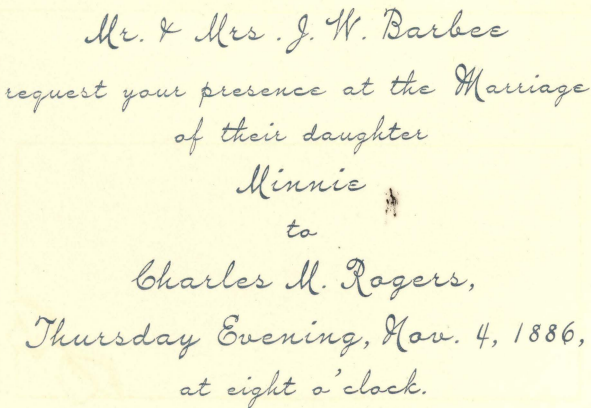 Mr. & Mrs. J. W. Barbee
request your presence at the Marriage
of their daughter
Minnie
to
Charles M. Rogers,
Thursday Evening, Nov. 4, 1886,
at eight o'clock.